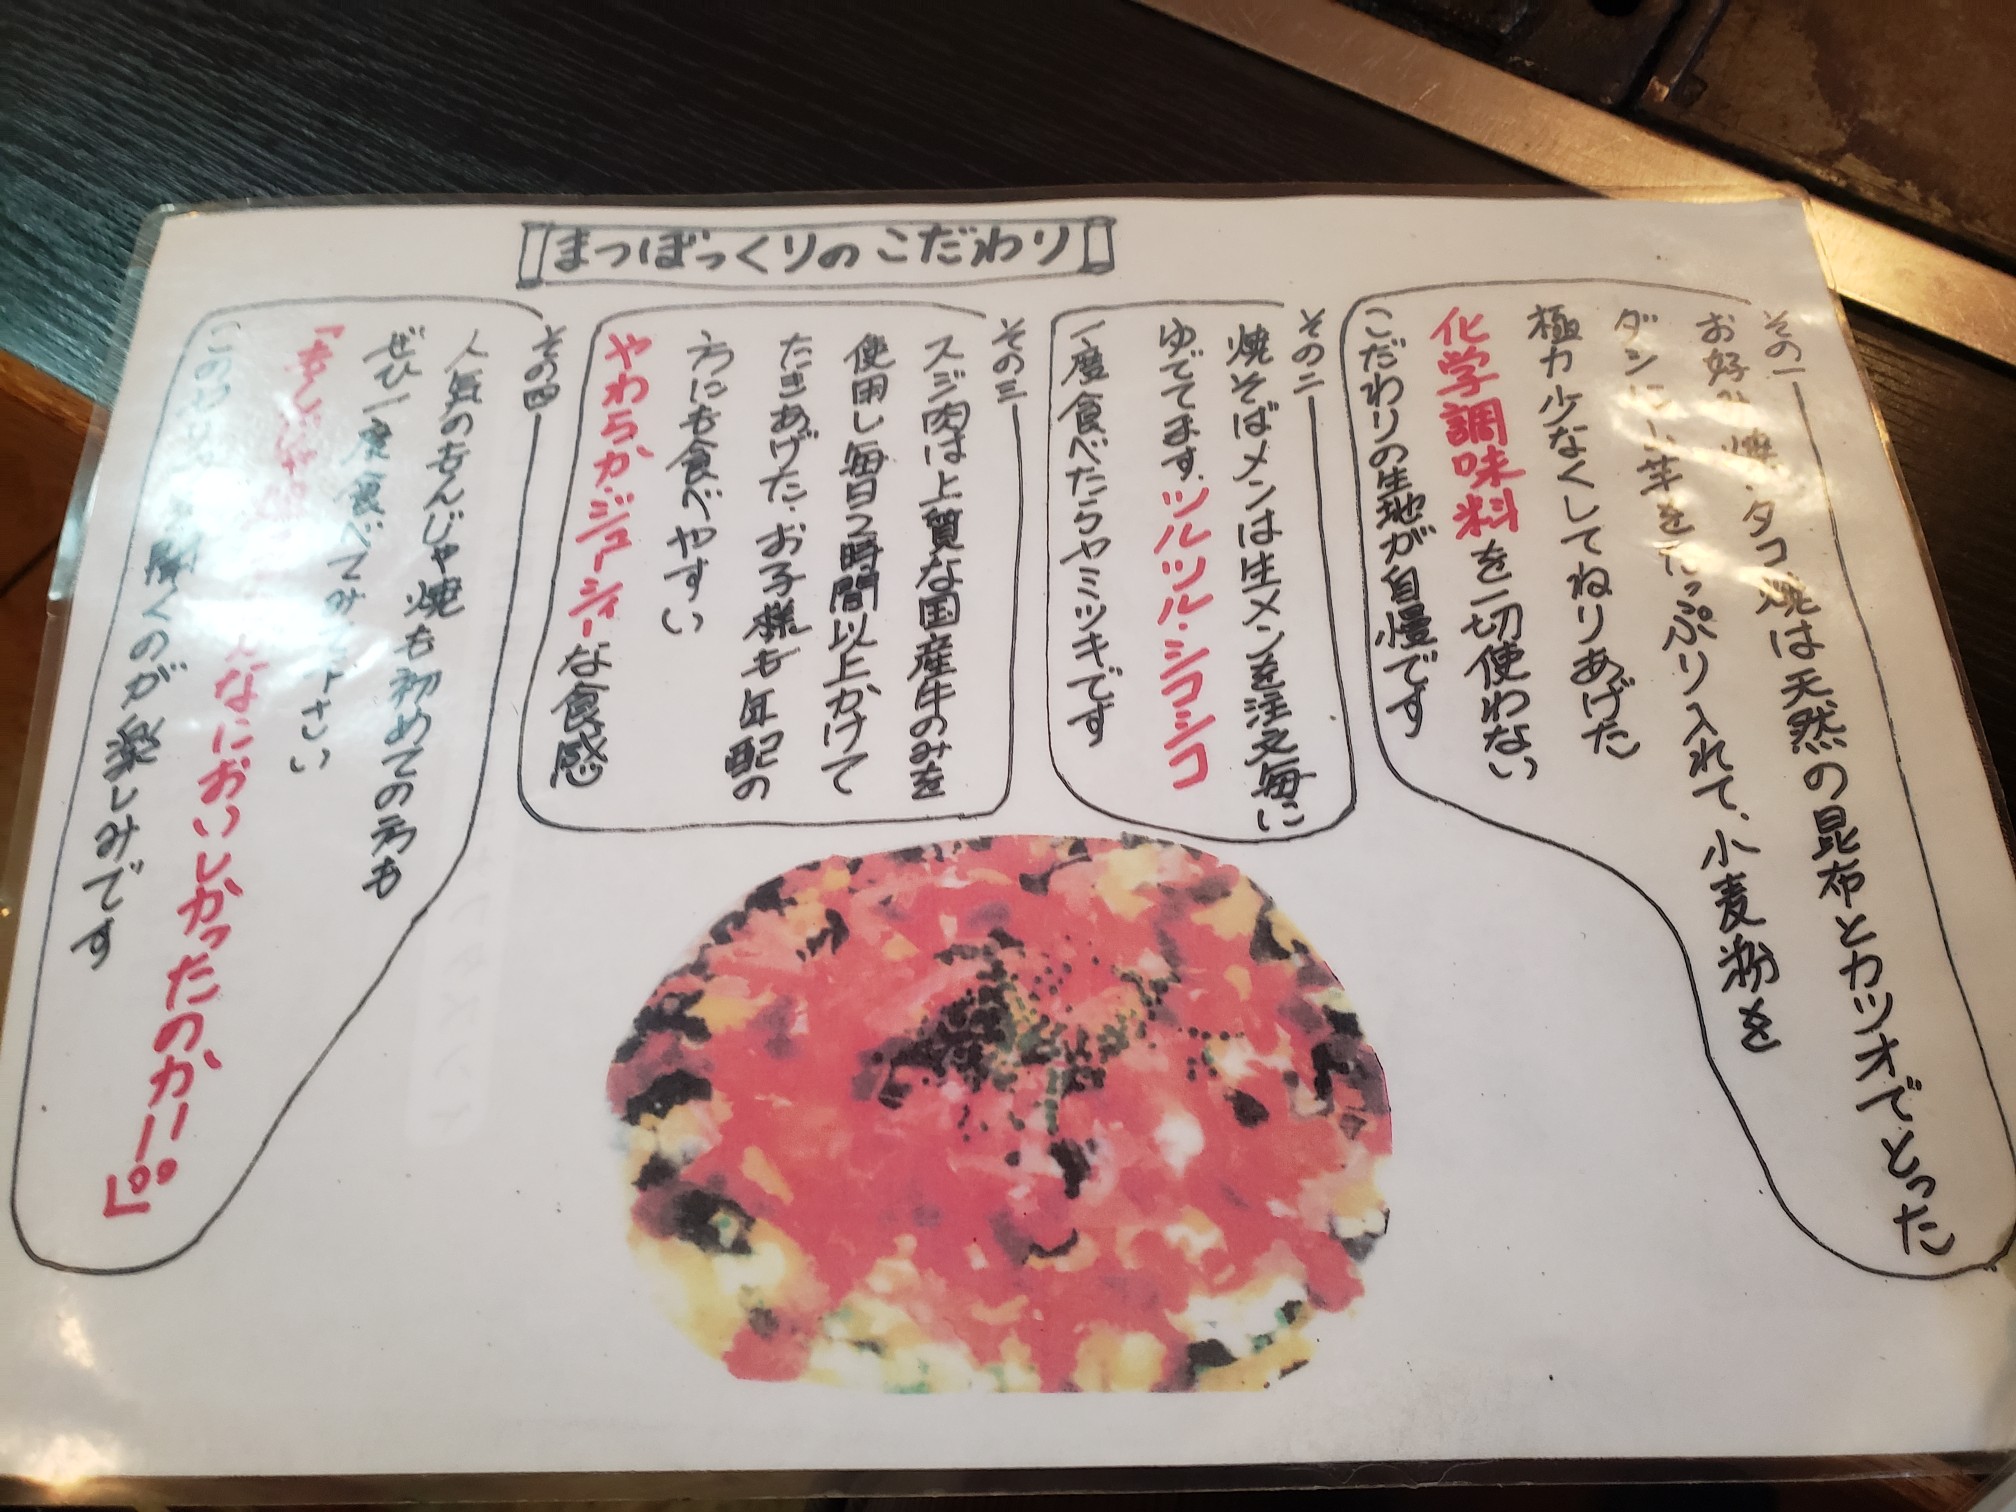 まつぼっくりのこだわり
その一
お好み焼・タコ焼は天然の昆布とカツオでとった
ダシに山芋をたっぷり入れて、小麦粉を
極力少なくしてねりあげた
化学調味料を一切使わない
こだわりの生地が自慢です
その二
焼そばメンは生メンを注文毎に
ゆでてます。ツルツル・シコシコ
一度食べたらヤミツキです
その三
スジ肉は上質な国産牛のみを
使用し毎日2時間以上かけて
たきあげた・お子様も年配の
方にも食べやすい
やわらか・ジューシィーな食感
その四
人気のもんじゃ焼も初めての方も
ぜひ一度食べてみて下さい
「もんじゃ焼
んなにおいしかったのかー!!。」
この
を聞くのが楽しみです